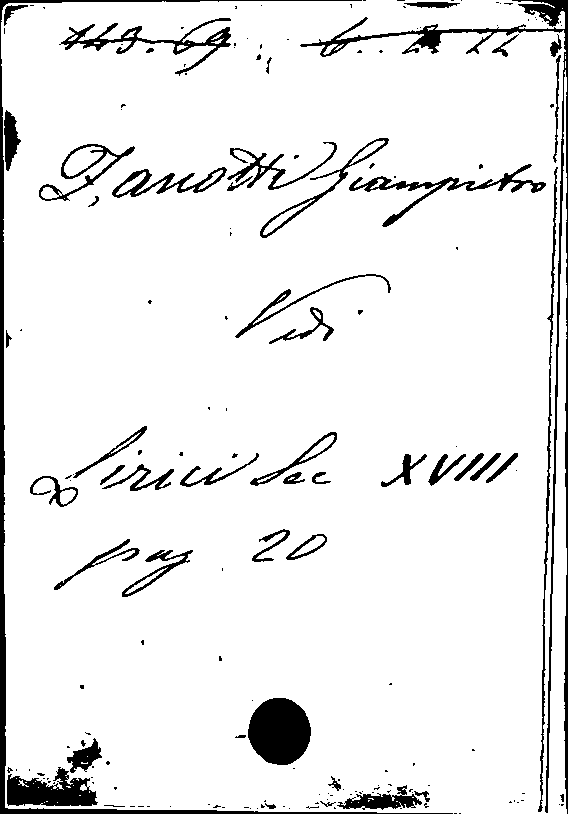 143. 69. 6. 2. 22
Zanotti Giampietro
Vedi
Lirici Sec XVIII
pag 20